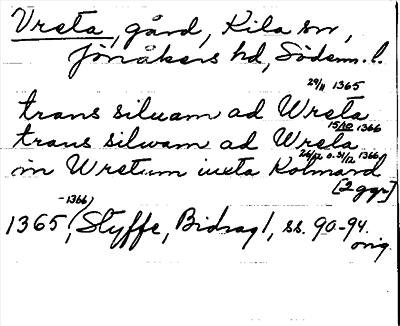 Vreta, gård, Kila sn,
Jönåkers hd, Söderm. l.
29/11 1365
trans siluam ad Wreta
15/10 1366
trans silwam ad Wreta
26/12 o. 31/12 1366
in Wretum iuxta Kolmard
[2 ggr]
1365 (-1366), Styffe, Bidrag 1, ss. 90-94.
orig.